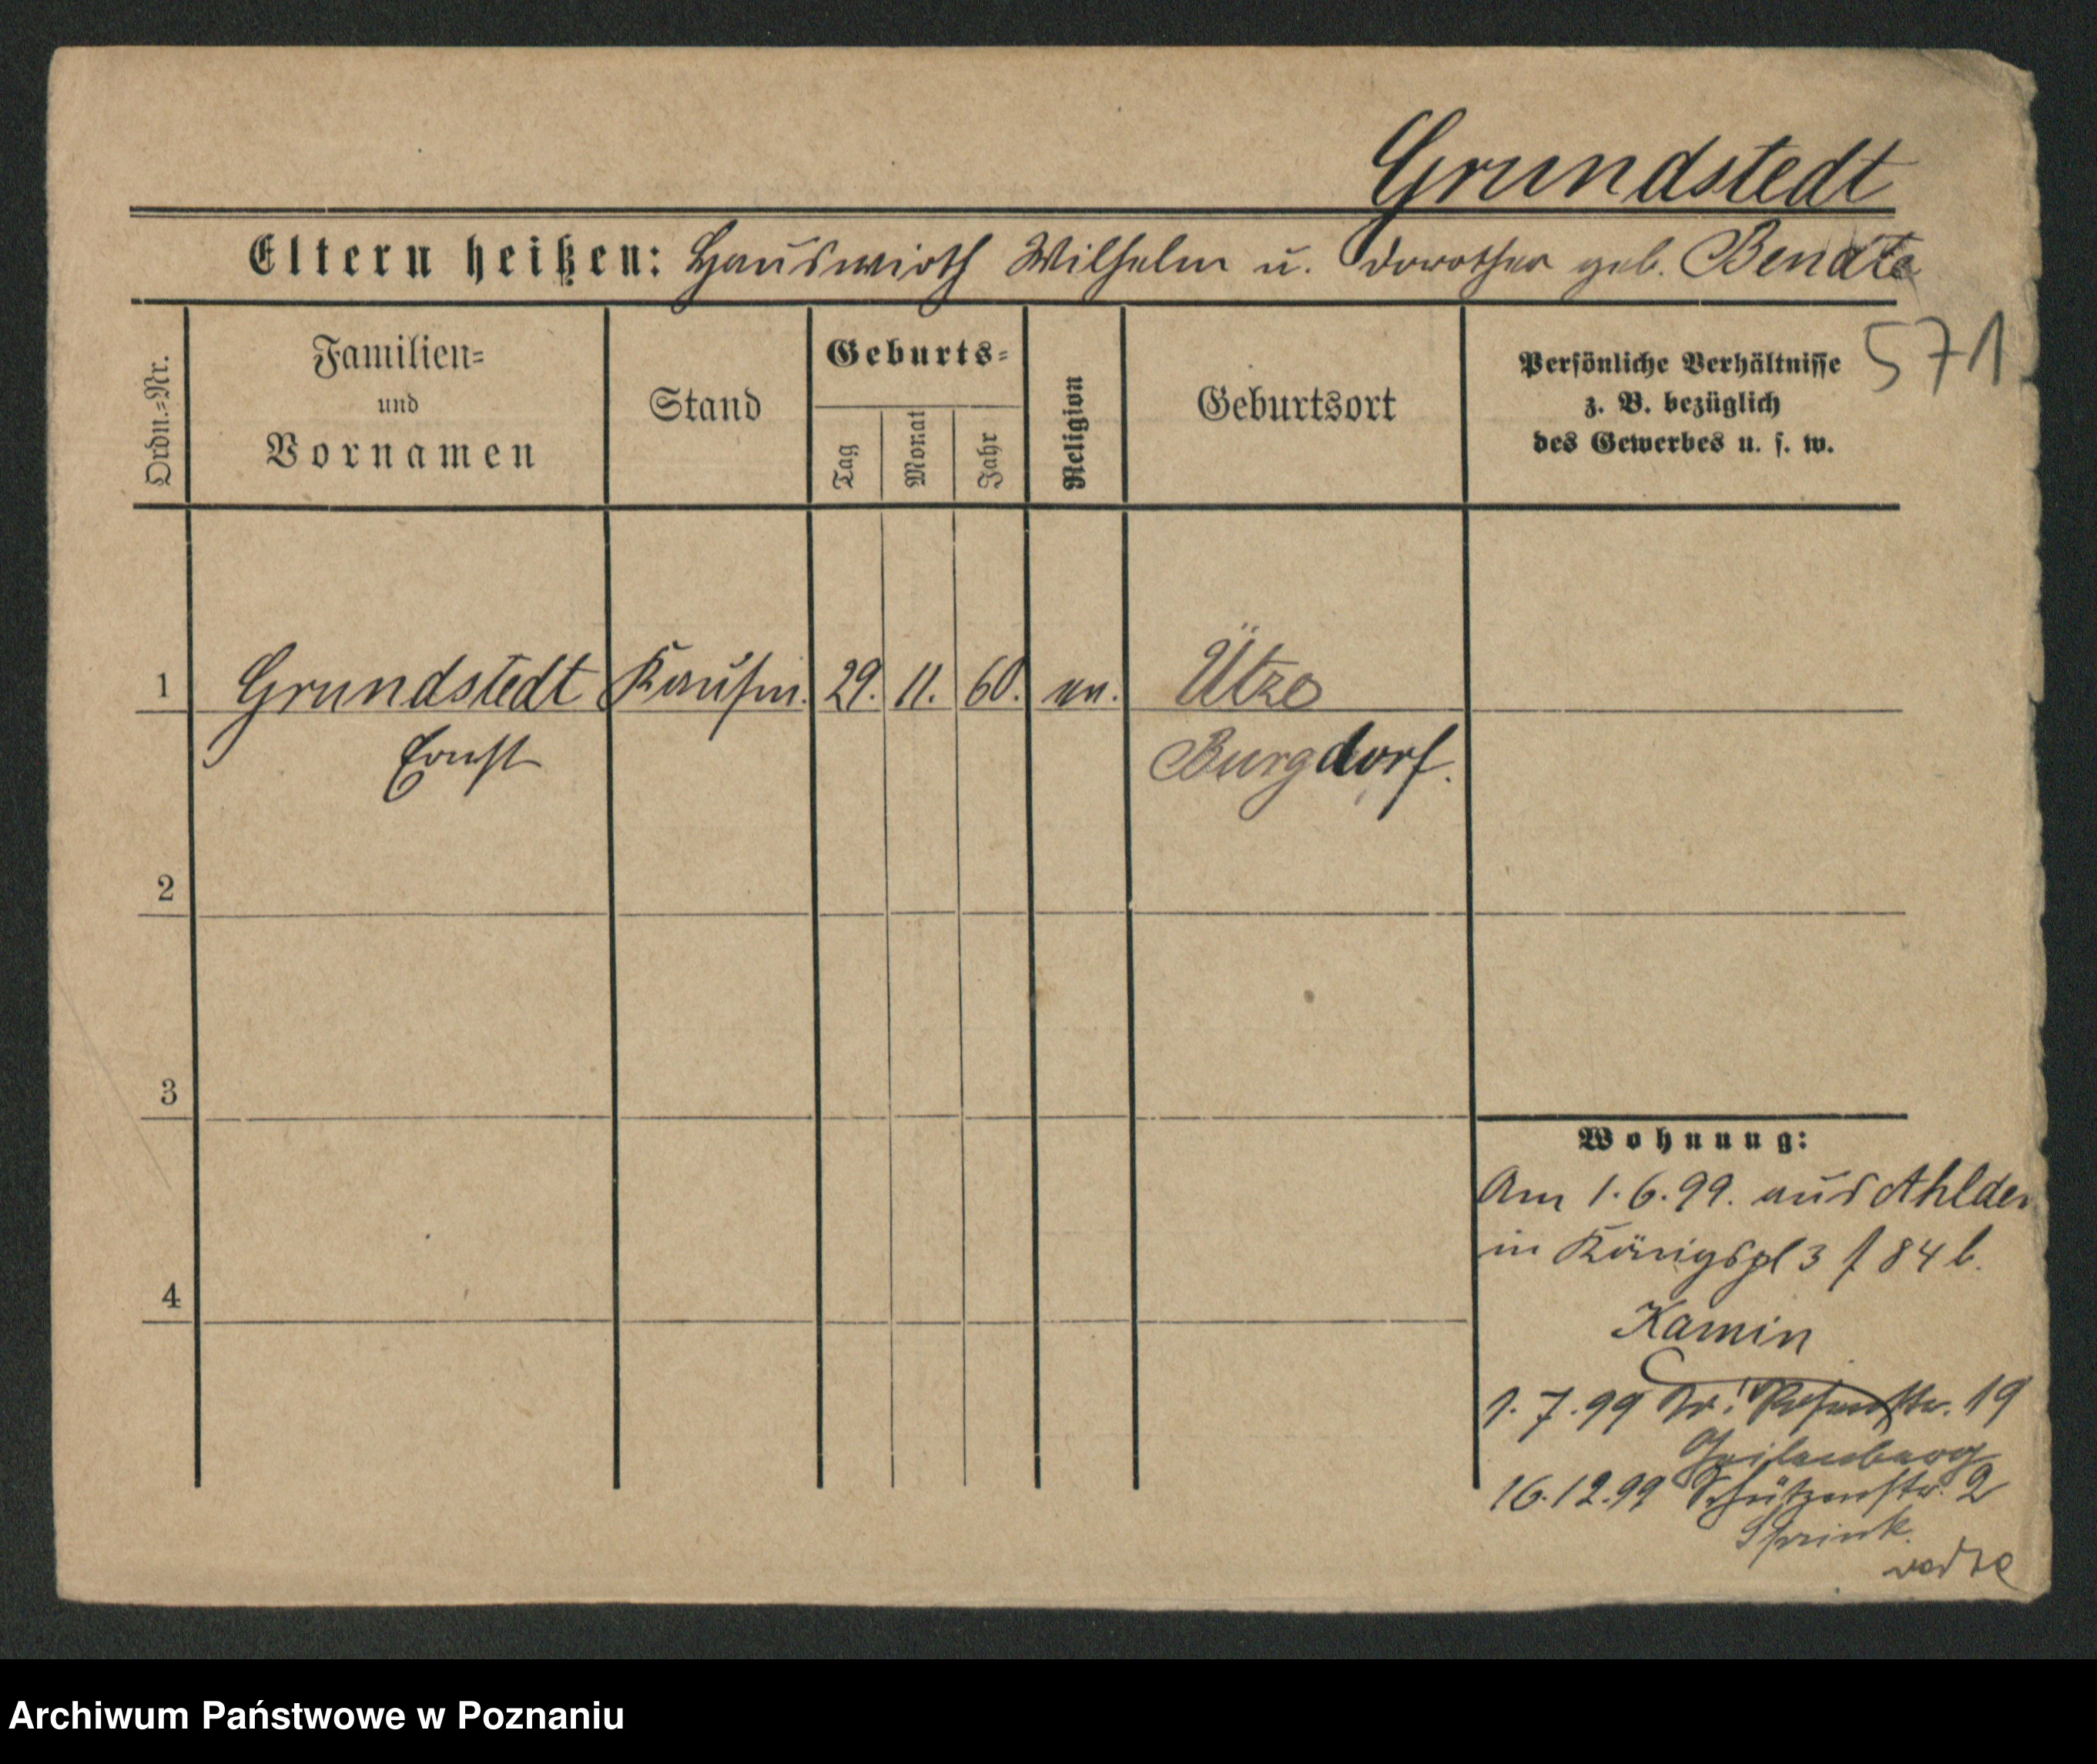 Grundstedt
Eltern heißen: Hauswirth Wilhelm u. Dorothea geb. Bendte
571
Ordn.=Nr.
Familien=
und
Vornamen
Stand
Geburts=
Tag
Monat
Jahr
Religion
Geburtsort
Persönliche Verhältnisse
z. B. bezüglich
des Gewerbes u. s. w.
1 Grundstedt Kaufm. 29. 11. 60. ev. Ütze
Ernst Burgdorf.
2
3
4
Wohnung:
Am 1.6.99. aus Ahlden
in Königspl 3 f 84 b.
Kamin
1.7.99 19
16.12.99 Schützenstr. 2
Archiwum Państwowe w Poznaniu